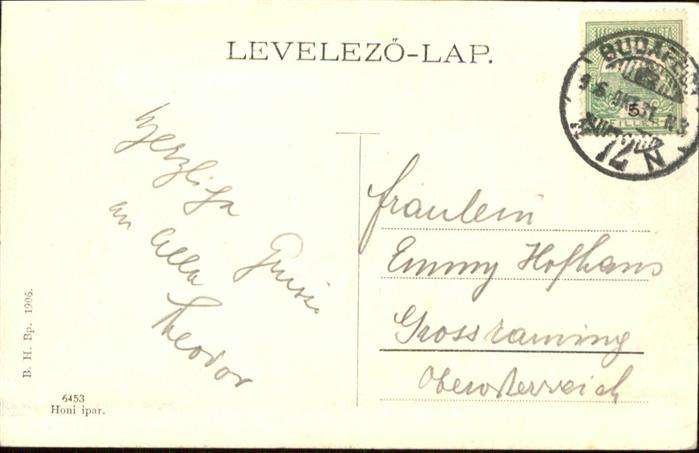 LEVELEZŐ-LAP.
BUDAPEST
5
FILLÉR
72 N
Herzliche Grüsse
an alle
Theodor
Fräulein
Emmy Hofhans
Grossraming
Oberösterreich
B. H. Bp. 1906.
6453
Honi ipar.